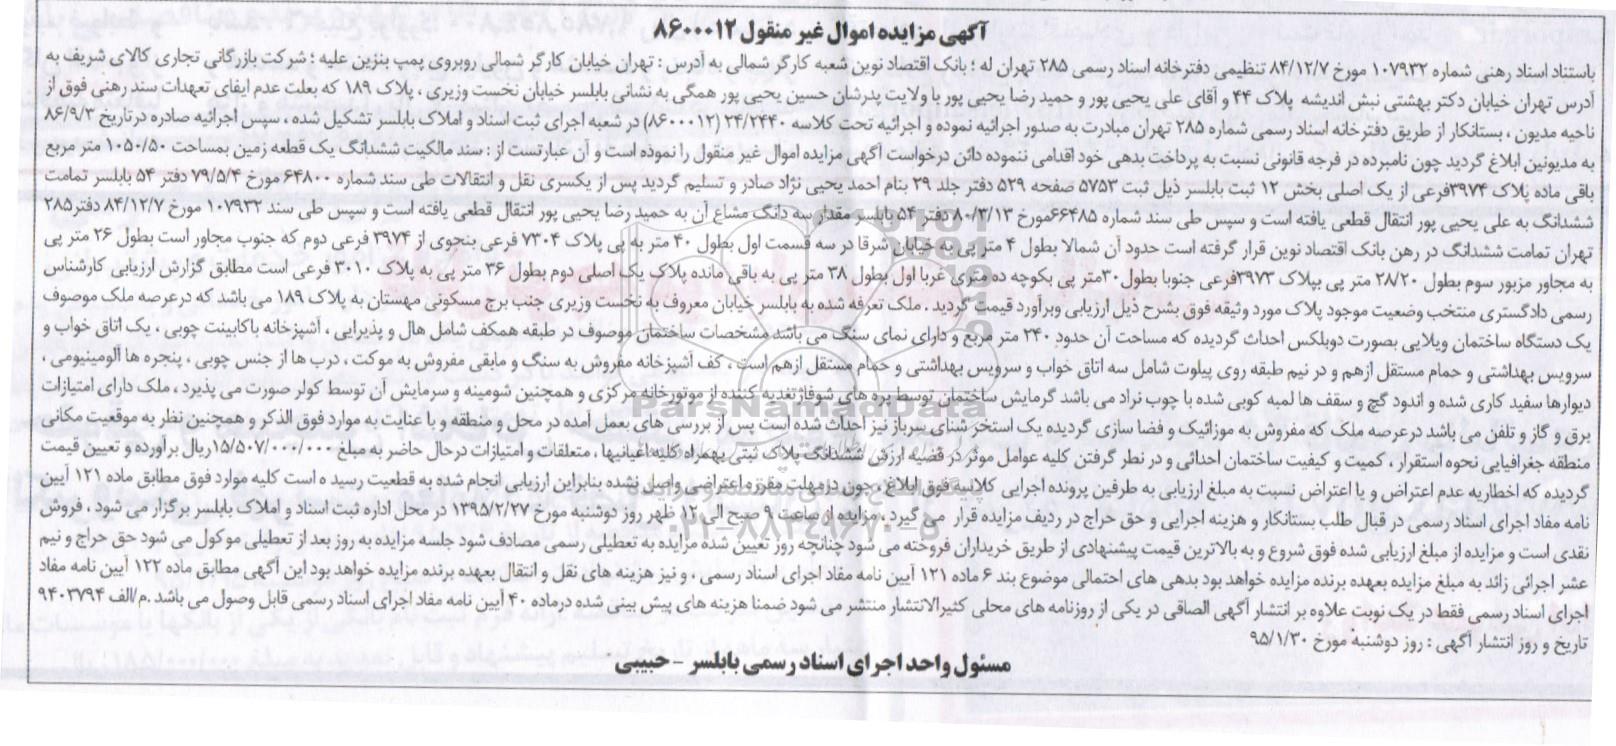 آگهی مزایده اموال غیر منقول ۸۶۰۰۰۱۲
باستناد اسناد رهنی شماره ۱۰۷۹۳۲ مورخ ۸۴/۱۲/۷ تنظیمی دفترخانه اسناد رسمی ۲۸۵ تهران له ؛ بانک اقتصاد نوین شعبه کارگر شمالی به آدرس : تهران خیابان کارگر شمالی روبروی پمپ بنزین علیه ؛ شرکت بازرگانی تجاری کالای شریف به
آدرس تهران خیابان دکتر بهشتی نبش اندیشه پلاک ۴۴ و آقای علی یحیی پور و حمید رضا یحیی پور با ولایت پدرشان حسین یحیی پور همگی به نشانی بابلسر خیابان نخست وزیری ، پلاک ۱۸۹ که بعلت عدم ایفای تعهدات سند رهنی فوق از
ناحیه مدیون ، بستانکار از طریق دفترخانه اسناد رسمی شماره ۲۸۵ تهران مبادرت به صدور اجرائیه نموده و اجرائیه تحت کلاسه ۲۴/۲۴۴۰ (۸۶۰۰۰۱۲) در شعبه اجرای ثبت اسناد و املاک بابلسر تشکیل شده ، سپس اجرائیه صادره درتاریخ ۸۶/۹/۲
به مدیونین ابلاغ گردید چون نامبرده در فرجه قانونی نسبت به پرداخت بدهی خود اقدامی ننموده دائن درخواست آگهی مزایده اموال غیر منقول را نموده است و آن عبارتست از : سند مالکیت ششدانگ یک قطعه زمین بمساحت ۱۰۵۰/۵۰ متر مربع
باقی ماده پلاک ۳۹۷۴فرعی از یک اصلی بخش ۱۲ ثبت بابلسر ذیل ثبت ۵۷۵۳ صفحه ۵۲۹ دفتر جلد ۲۹ بنام احمد یحیی نژاد صادر و تسلیم گردید پس از یکسری نقل و انتقالات طی سند شماره ۶۴۸۰۰ مورخ ۷۹/۵/۴ دفتر ۵۴ بابلسر تمامت
ششدانگ به علی یحیی پور انتقال قطعی یافته است و سپس طی سند شماره ۶۶۴۸۵مورخ ۸۰/۳/۱۳ دفتر ۵۴ بابلسر مقدار سه دانگ مشاع آن به حمید رضا یحیی پور انتقال قطعی یافته است و سپس طی سند ۱۰۷۹۳۲ مورخ ۸۴/۱۲/۷ دفتر۲۸۵
تهران تمامت ششدانگ در رهن بانک اقتصاد نوین قرار گرفته است حدود آن شمالا بطول ۴ متر پی به خیابان شرقا در سه قسمت اول بطول ۴۰ متر به پی پلاک ۷۳۰۴ فرعی بنحوی از ۳۹۷۴ فرعی دوم که جنوب مجاور است بطول ۲۶ متر پی
به مجاور مزبور سوم بطول ۲۸/۲۰ متر پی بپلاک ۳۹۷۳فرعی جنوبا بطول ۳۰متر پی بکوچه ده متری غربا اول بطول ۳۸ متر پی به باقی مانده پلاک یک اصلی دوم بطول ۳۶ متر پی به پلاک ۳۰۱۰ فرعی است مطابق گزارش ارزیابی کارشناس
رسمی دادگستری منتخب وضعیت موجود پلاک مورد وثیقه فوق بشرح ذیل ارزیابی وبرآورد قیمت گردید . ملک تعرفه شده به بابلسر خیابان معروف به نخست وزیری جنب برج مسکونی مهستان به پلاک ۱۸۹ می باشد که درعرصه ملک موصوف
یک دستگاه ساختمان ویلایی بصورت دوبلکس احداث گردیده که مساحت آن حدود ۲۴۰ متر مربع و دارای نمای سنگ می باشد مشخصات ساختمان موصوف در طبقه همکف شامل هال و پذیرایی ، آشپزخانه باکابینت چوبی ، یک اتاق خواب و
سرویس بهداشتی و حمام مستقل ازهم و در نیم طبقه روی پیلوت شامل سه اتاق خواب و سرویس بهداشتی و حمام مستقل ازهم است ، کف آشپزخانه مفروش به سنگ و مابقی مفروش به موکت ، درب ها از جنس چوبی ، پنجره ها آلومینیومی ،
دیوارها سفید کاری شده و اندود گچ و سقف ها لمبه کوبی شده با چوب نراد می باشد گرمایش ساختمان توسط پره های شوفاژتغذیه کننده از موتورخانه مرکزی و همچنین شومینه و سرمایش آن توسط کولر صورت می پذیرد ، ملک دارای امتیازات
برق و گاز و تلفن می باشد درعرصه ملک که مفروش به موزائیک و فضا سازی گردیده یک استخر شنای سرباز نیز احداث شده است پس از بررسی های بعمل آمده در محل و منطقه و با عنایت به موارد فوق الذکر و همچنین نظر به موقعیت مکانی
منطقه جغرافیایی نحوه استقرار ، کمیت و کیفیت ساختمان احداثی و در نظر گرفتن کلیه عوامل موثر در قضیه ارزش ششدانگ پلاک ثبتی بهمراه کلیه اعیانیها ، متعلقات و امتیازات درحال حاضر به مبلغ ۱۵/۵۰۷/۰۰۰/۰۰۰ریال برآورده و تعیین قیمت
گردیده که اخطاریه عدم اعتراض و یا اعتراض نسبت به مبلغ ارزیابی به طرفین پرونده اجرایی کلاسه فوق ابلاغ ، چون درمهلت مقرره اعتراضی واصل نشده بنابراین ارزیابی انجام شده به قطعیت رسید ه است کلیه موارد فوق مطابق ماده ۱۲۱ آیین
نامه مفاد اجرای اسناد رسمی در قبال طلب بستانکار و هزینه اجرایی و حق حراج در ردیف مزایده قرار می گیرد ، مزایده از ساعت ۹ صبح الی ۱۲ ظهر روز دوشنبه مورخ ۱۳۹۵/۲/۲۷ در محل اداره ثبت اسناد و املاک بابلسر برگزار می شود ، فروش
نقدی است و مزایده از مبلغ ارزیابی شده فوق شروع و به بالاترین قیمت پیشنهادی از طریق خریداران فروخته می شود چنانچه روز تعیین شده مزایده به تعطیلی رسمی مصادف شود جلسه مزایده به روز بعد از تعطیلی موکول می شود حق حراج و نیم
عشر اجرائی زائد به مبلغ مزایده بعهده برنده مزایده خواهد بود بدهی های احتمالی موضوع بند ۶ ماده ۱۲۱ آیین نامه مفاد اجرای اسناد رسمی ، و نیز هزینه های نقل و انتقال بعهده برنده مزایده خواهد بود این آگهی مطابق ماده ۱۲۲ آیین نامه مفاد
اجرای اسناد رسمی فقط در یک نوبت علاوه بر انتشار آگهی الصاقی در یکی از روزنامه های محلی کثیرالانتشار منتشر می شود ضمنا هزینه های پیش بینی شده درماده ۴۰ آیین نامه مفاد اجرای اسناد رسمی قابل وصول می باشد .م/الف ۹۴۰۳۷۹۴
تاریخ و روز انتشار آگهی : روز دوشنبه مورخ ۹۵/۱/۳۰
مسئول واحد اجرای اسناد رسمی بابلسر - حبیبی
ParsNamadData
۰۲۱-۸۸۳۴۹۶۷۰-۵